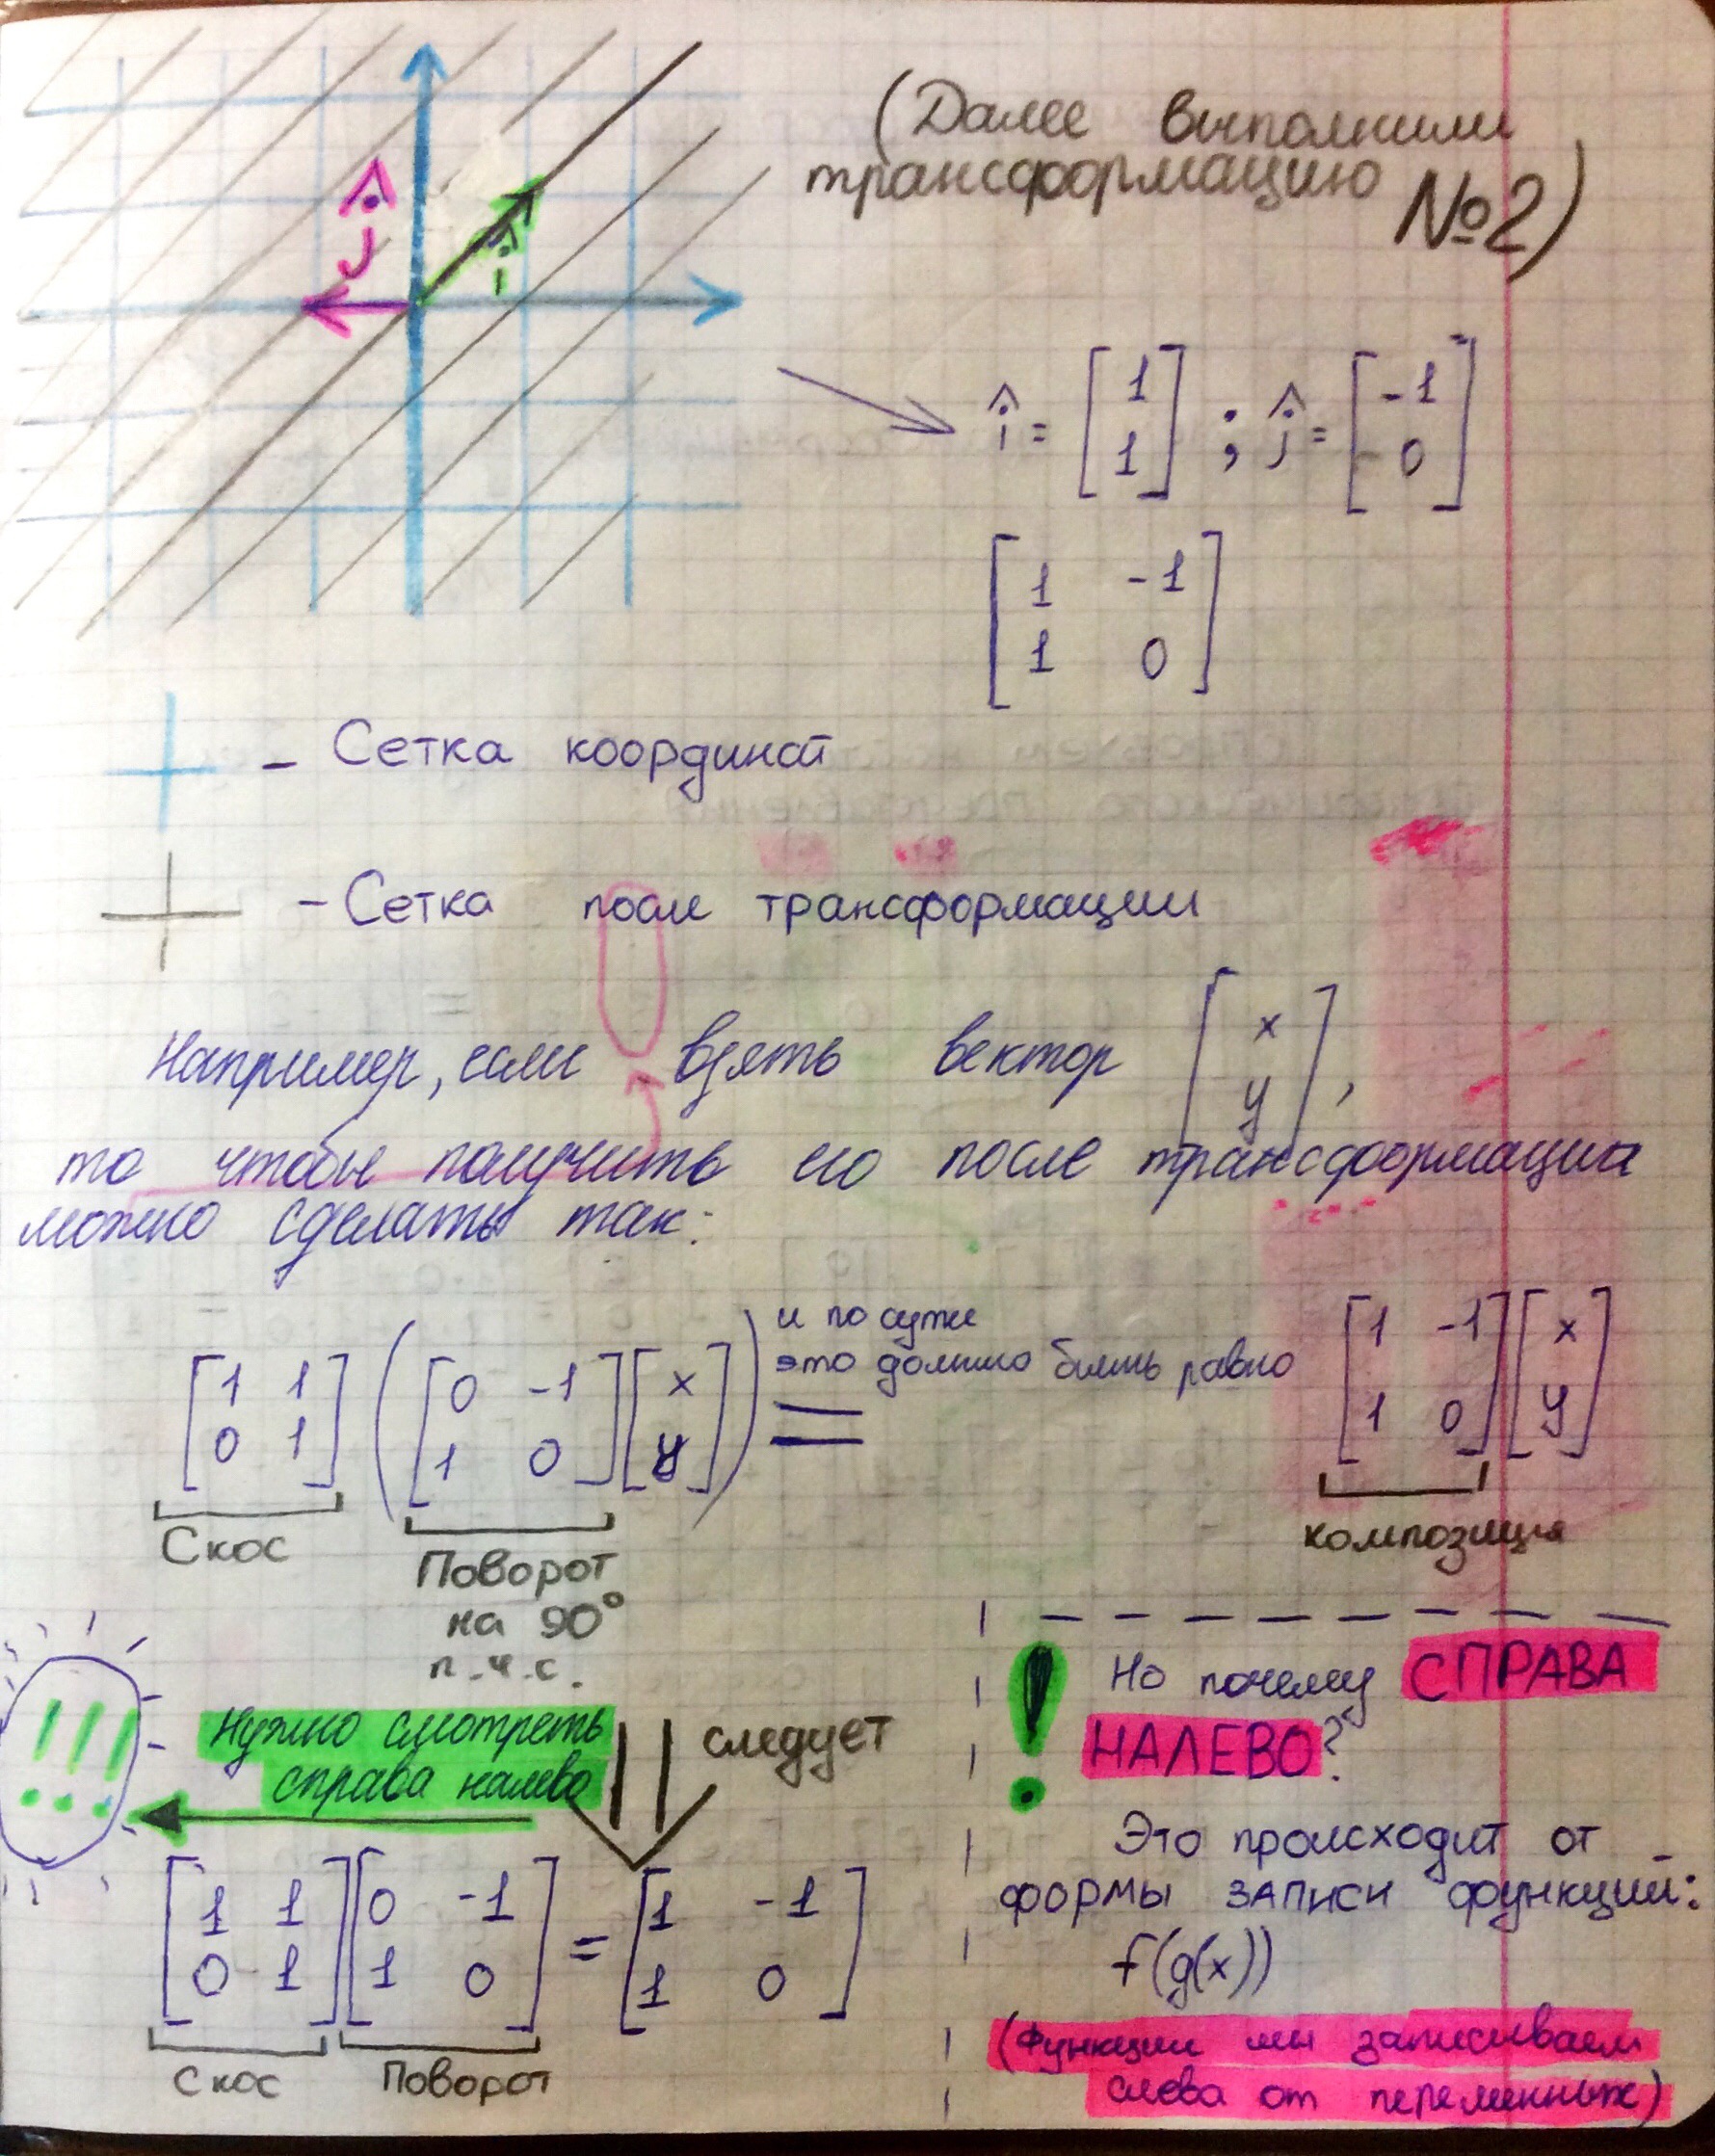 (Далее выполним
трансформацию
№2)
ĵ
î
î = [1 1] ; ĵ = [-1 0]
[1 -1
1 0]
- Сетка координат
- Сетка после трансформации
Например, если взять вектор [x y],
то чтобы получить его после трансформации
можно сделать так:
и по сути
это должно быть равно
[1 1 ( [0 -1 [x = [1 -1 [x
0 1] 1 0] y] ) 1 0] y]
Скос
Поворот
на 90°
п.ч.с.
композиция
!!!
Нужно смотреть
справа налево
следует
[1 1 [0 -1 = [1 -1
0 1] 1 0] 1 0]
Скос Поворот
! Но почему СПРАВА
НАЛЕВО?
Это происходит от
формы записи функций:
f(g(x))
(Функции мы записываем
слева от переменных)